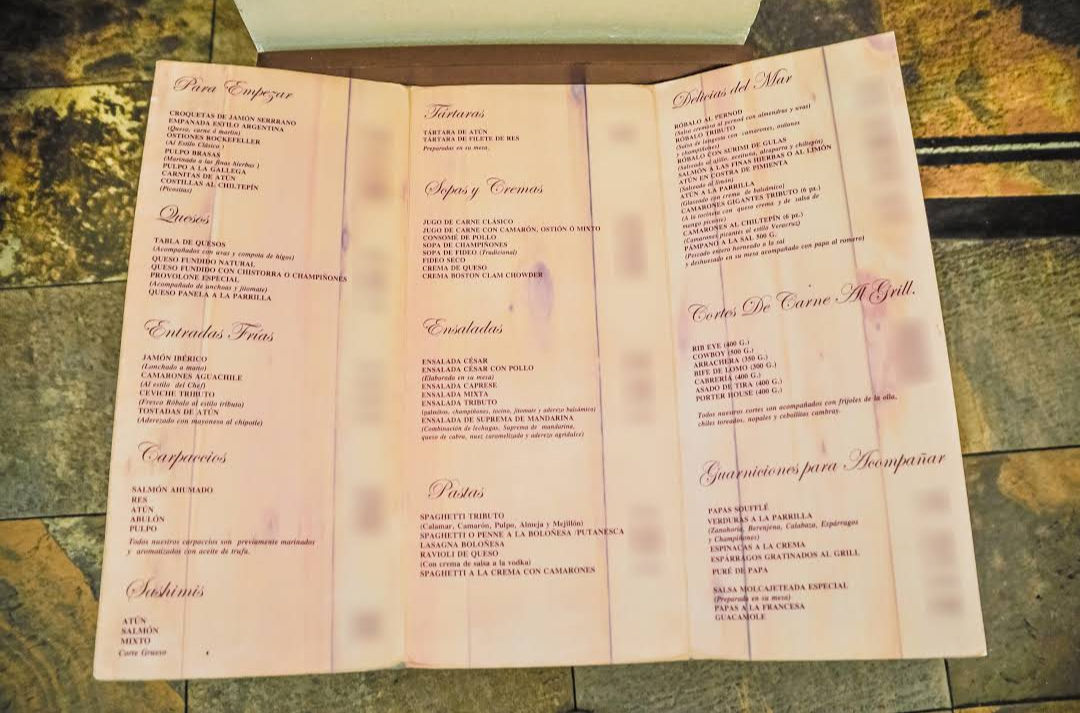 Para Empezar
CROQUETAS DE JAMÓN SERRRANO
EMPANADA ESTILO ARGENTINA
(Queso, carne ó marlin)
OSTIONES ROCKEFELLER
(Al Estilo Clásico )
PULPO BRASAS
(Marinado a las finas hierbas )
PULPO A LA GALLEGA
CARNITAS DE ATÚN
COSTILLAS AL CHILTEPÍN
(Picositas)
Quesos
TABLA DE QUESOS
(Acompañados con uvas y compota de higos)
QUESO FUNDIDO NATURAL
QUESO FUNDIDO CON CHISTORRA O CHAMPIÑONES
PROVOLONE ESPECIAL
(Acompañado de anchoas y jitomate)
QUESO PANELA A LA PARRILLA
Entradas Frías
JAMÓN IBÉRICO
(Lonchado a mano)
CAMARONES AGUACHILE
(Al estilo del Chef)
CEVICHE TRIBUTO
(Fresco Róbalo al estilo tributo)
TOSTADAS DE ATÚN
(Aderezado con mayonesa al chipotle)
Carpaccios
SALMÓN AHUMADO
RES
ATÚN
ABULÓN
PULPO
Todos nuestros carpaccios son previamente marinados
y aromatizados con aceite de trufa.
Sashimis
ATÚN
SALMÓN
MIXTO
Corte Grueso
Tártaras
TÁRTARA DE ATÚN
TÁRTARA DE FILETE DE RES
Preparadas en su mesa.
Sopas y Cremas
JUGO DE CARNE CLÁSICO
JUGO DE CARNE CON CAMARÓN, OSTIÓN Ó MIXTO
CONSOME DE POLLO
SOPA DE CHAMPIÑONES
SOPA DE FIDEO (Tradicional)
FIDEO SECO
CREMA DE QUESO
CREMA BOSTON CLAM CHOWDER
Ensaladas
ENSALADA CÉSAR
ENSALADA CÉSAR CON POLLO
(Elaborada en su mesa)
ENSALADA CAPRESE
ENSALADA MIXTA
ENSALADA TRIBUTO
(palmitos, champiñones, tocino, jitomate y aderezo balsámico)
ENSALADA DE SUPREMA DE MANDARINA
(Combinación de lechugas, Suprema de mandarina,
queso de cabra, nuez caramelizada y aderezo agridulce)
Pastas
SPAGHETTI TRIBUTO
(Calamar, Camarón, Pulpo, Almeja y Mejillón)
SPAGHETTI O PENNE A LA BOLOÑESA /PUTANESCA
LASAGNA BOLOÑESA
RAVIOLI DE QUESO
(Con crema de salsa a la vodka)
SPAGHETTI A LA CREMA CON CAMARONES
Delicias del Mar
RÓBALO AL PERNOD
(Salsa cremosa al pernod con almendras y uvas)
RÓBALO TRIBUTO
(Salsa de langosta con camarones, ostiones
y champiñones)
RÓBALO CON SURIMI DE GULAS
(Salteado al ajillo, aceituna, alcaparra y chiltepín)
SALMÓN A LAS FINAS HIERBAS O AL LIMÓN
ATÚN EN COSTRA DE PIMIENTA
(Salseado al limón)
ATÚN A LA PARRILLA
(Glaseado con crema de balsámico)
CAMARONES GIGANTES TRIBUTO (6 pz.)
(A la tocineta con queso crema y de salsa de
mango picante)
CAMARONES AL CHILTEPÍN (6 pz.)
(Camarones picantes al estilo Veracruz)
PÁMPANO A LA SAL 500 G.
(Pescado entero horneado a la sal
y deshuesado en su mesa acompañado con papa al romero)
Cortes De Carne Al Grill.
RIB EYE (400 G.)
COWBOY (500 G.)
ARRACHERA (350 G.)
BIFE DE LOMO (300 G.)
CABRERÍA (400 G.)
ASADO DE TIRA (400 G.)
PORTER HOUSE (400 G.)
Todos nuestros cortes son acompañados con frijoles de la olla,
chiles toreados, nopales y cebollitas cambray.
Guarniciones para Acompañar
PAPAS SOUFFLÉ
VERDURAS A LA PARRILLA
(Zanahoria, Berenjena, Calabaza, Espárragos
y Champiñones)
ESPINACAS A LA CREMA
ESPÁRRAGOS GRATINADOS AL GRILL
PURÉ DE PAPA
SALSA MOLCAJETEADA ESPECIAL
(Preparada en su mesa)
PAPAS A LA FRANCESA
GUACAMOLE